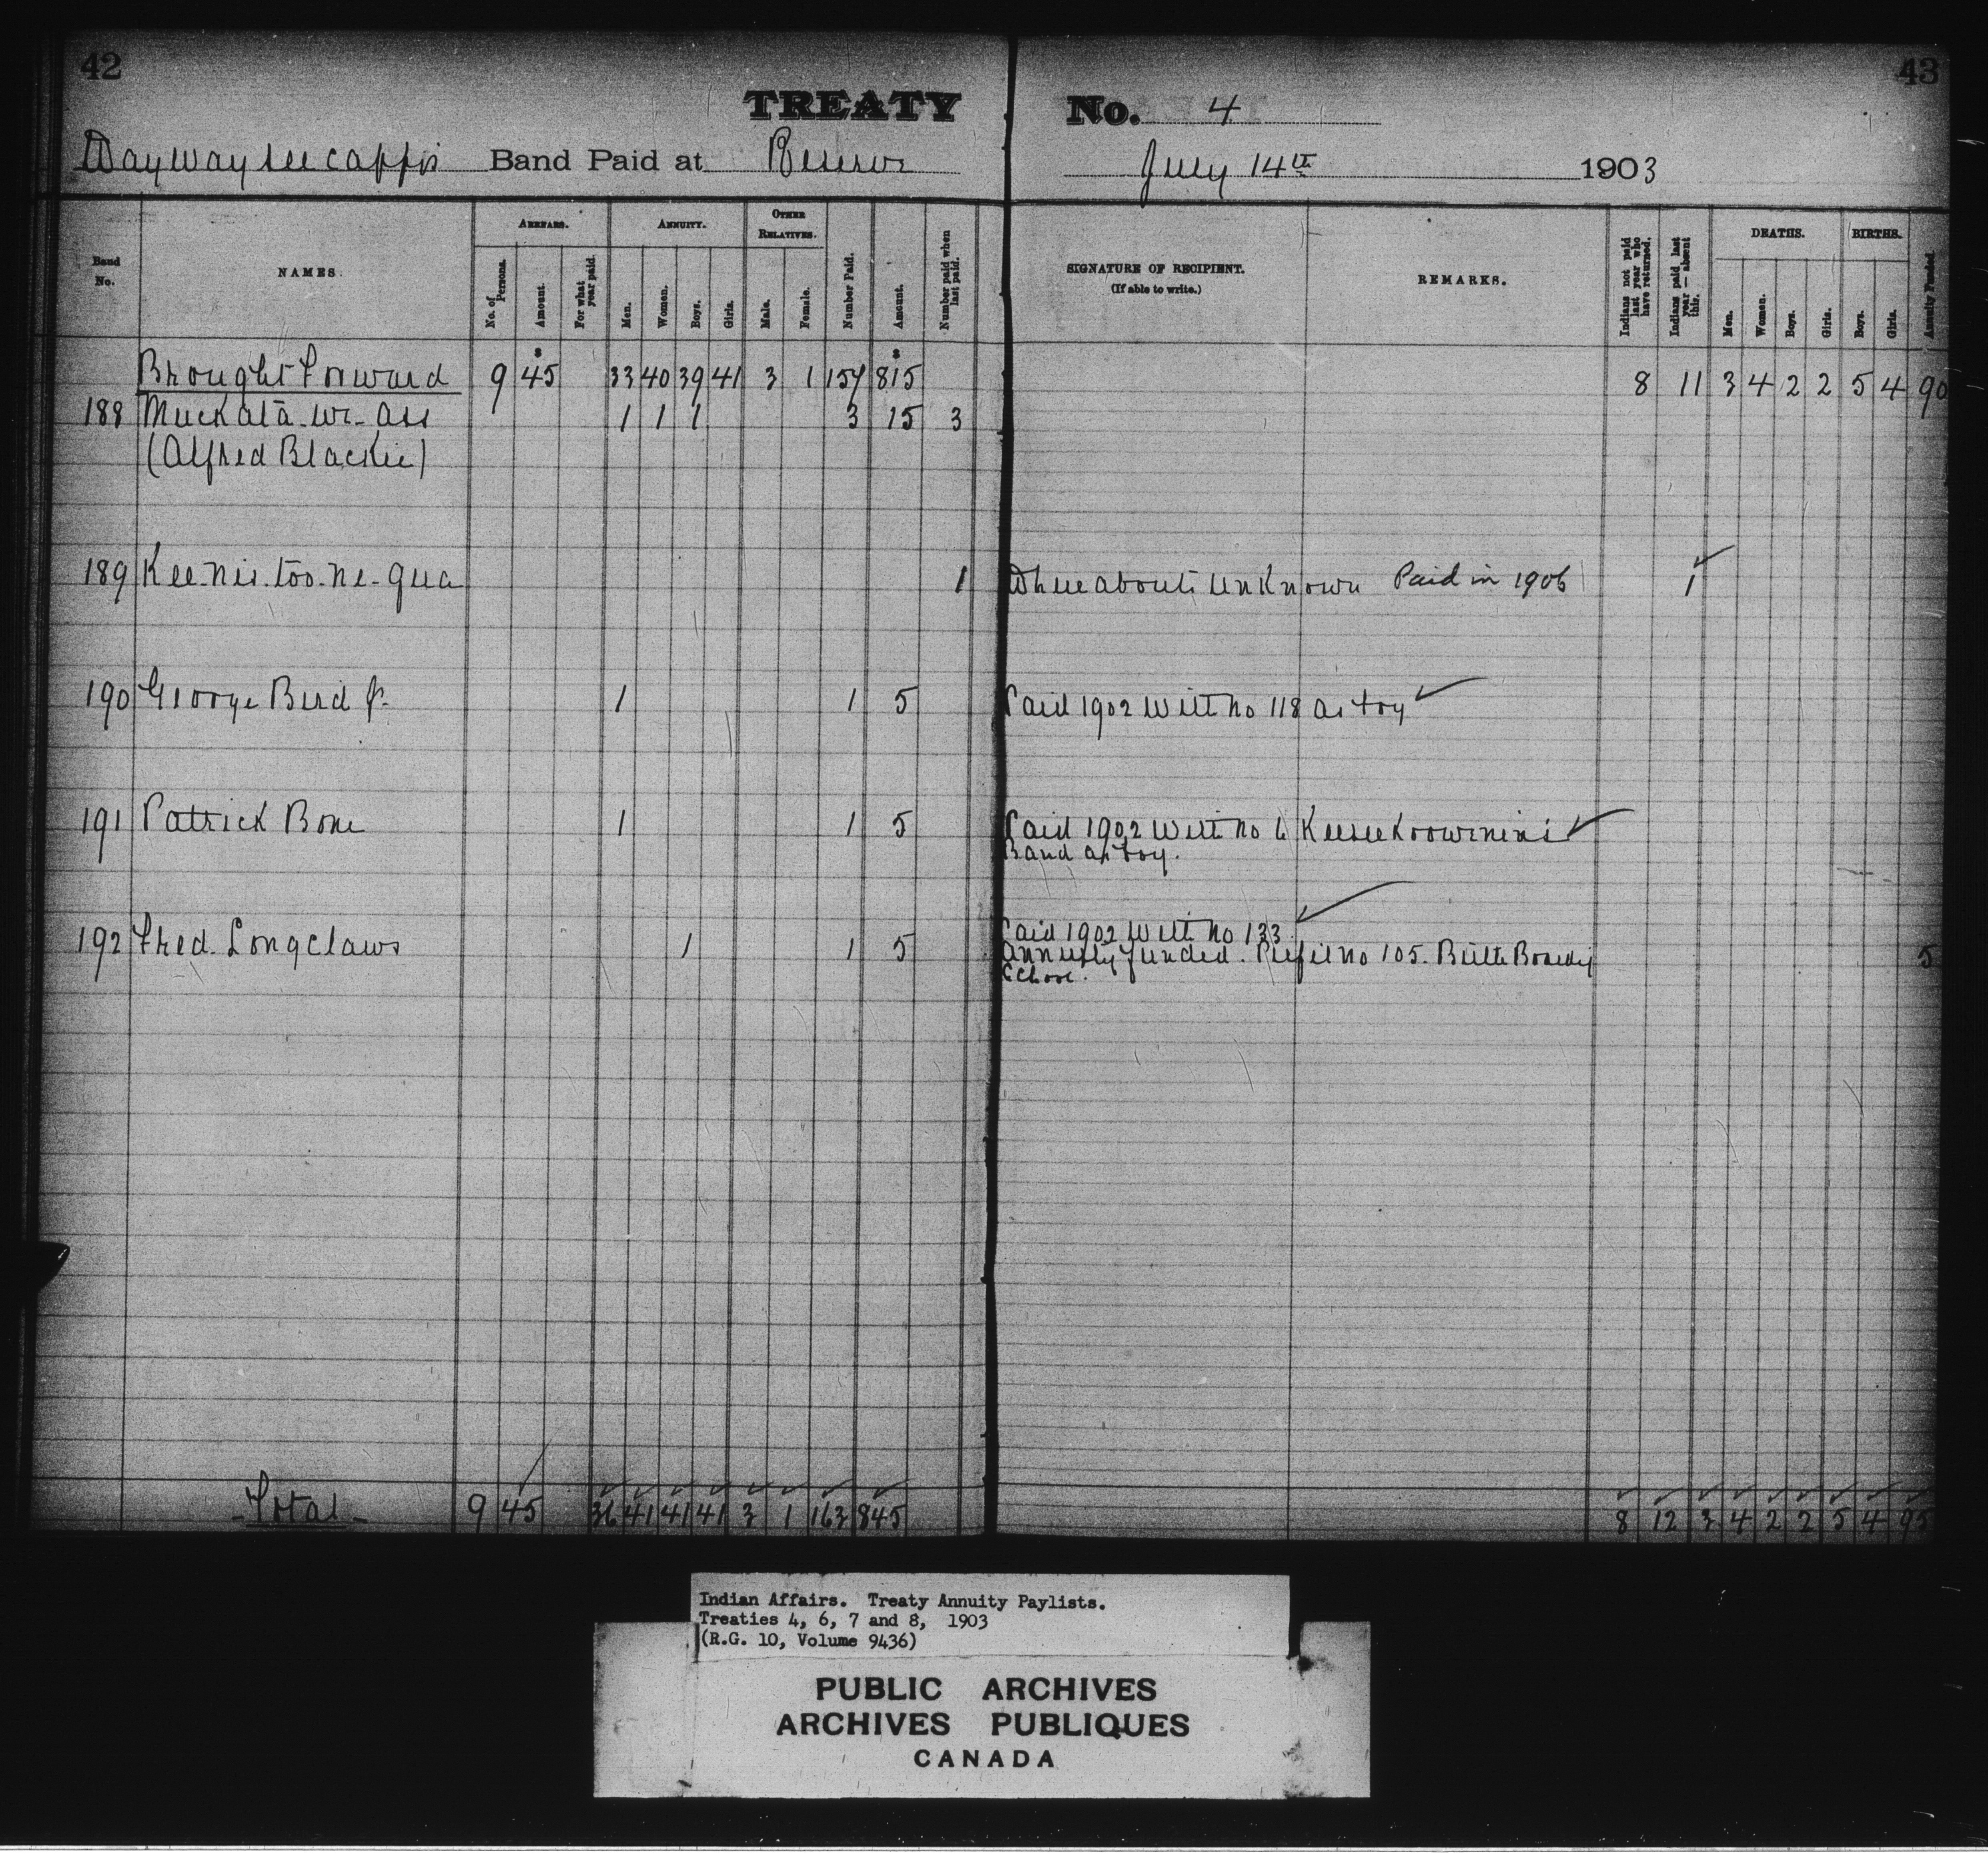 42
43
TREATY No. 4
Waywayseecappo Band Paid at Reserve July 14th 1903
Band No.
NAMES.
ARREARS.
No. of Persons.
Amount.
For what year paid.
ANNUITY.
Men.
Women.
Boys.
Girls.
OTHER RELATIVES.
Male.
Female.
Number Paid.
Amount.
Number paid when last paid.
SIGNATURE OF RECIPIENT.
(If able to write.)
REMARKS.
Indians not paid last year who have returned.
Indians paid last year — absent this.
DEATHS.
Men.
Women.
Boys.
Girls.
BIRTHS.
Boys.
Girls.
Annuity Funded.
Brought Forward 9 45 33 40 39 41 3 1 157 815 8 11 3 4 2 2 5 4 90
188 Muckata-we-ass 1 1 1 3 15 3
(Alfred Blackie)
189 Kee-nis-too-ne-qua 1 Whereabouts unknown Paid in 1906 1
190 George Bird Jr. 1 1 5 Paid 1902 with no 118 as boy
191 Patrick Bone 1 1 5 Paid 1902 with no 6 Keeseekoowenins
Band as boy.
192 Fred Longclaws 1 1 5 Paid 1902 with no 133
Annuity funded. Pupil no 105. Birtle Boarding 5
School.
- Total - 9 45 36 41 41 41 3 1 163 845 8 12 3 4 2 2 5 4 95
Indian Affairs. Treaty Annuity Paylists.
Treaties 4, 6, 7 and 8, 1903
(R.G. 10, Volume 9436)
PUBLIC ARCHIVES
ARCHIVES PUBLIQUES
CANADA